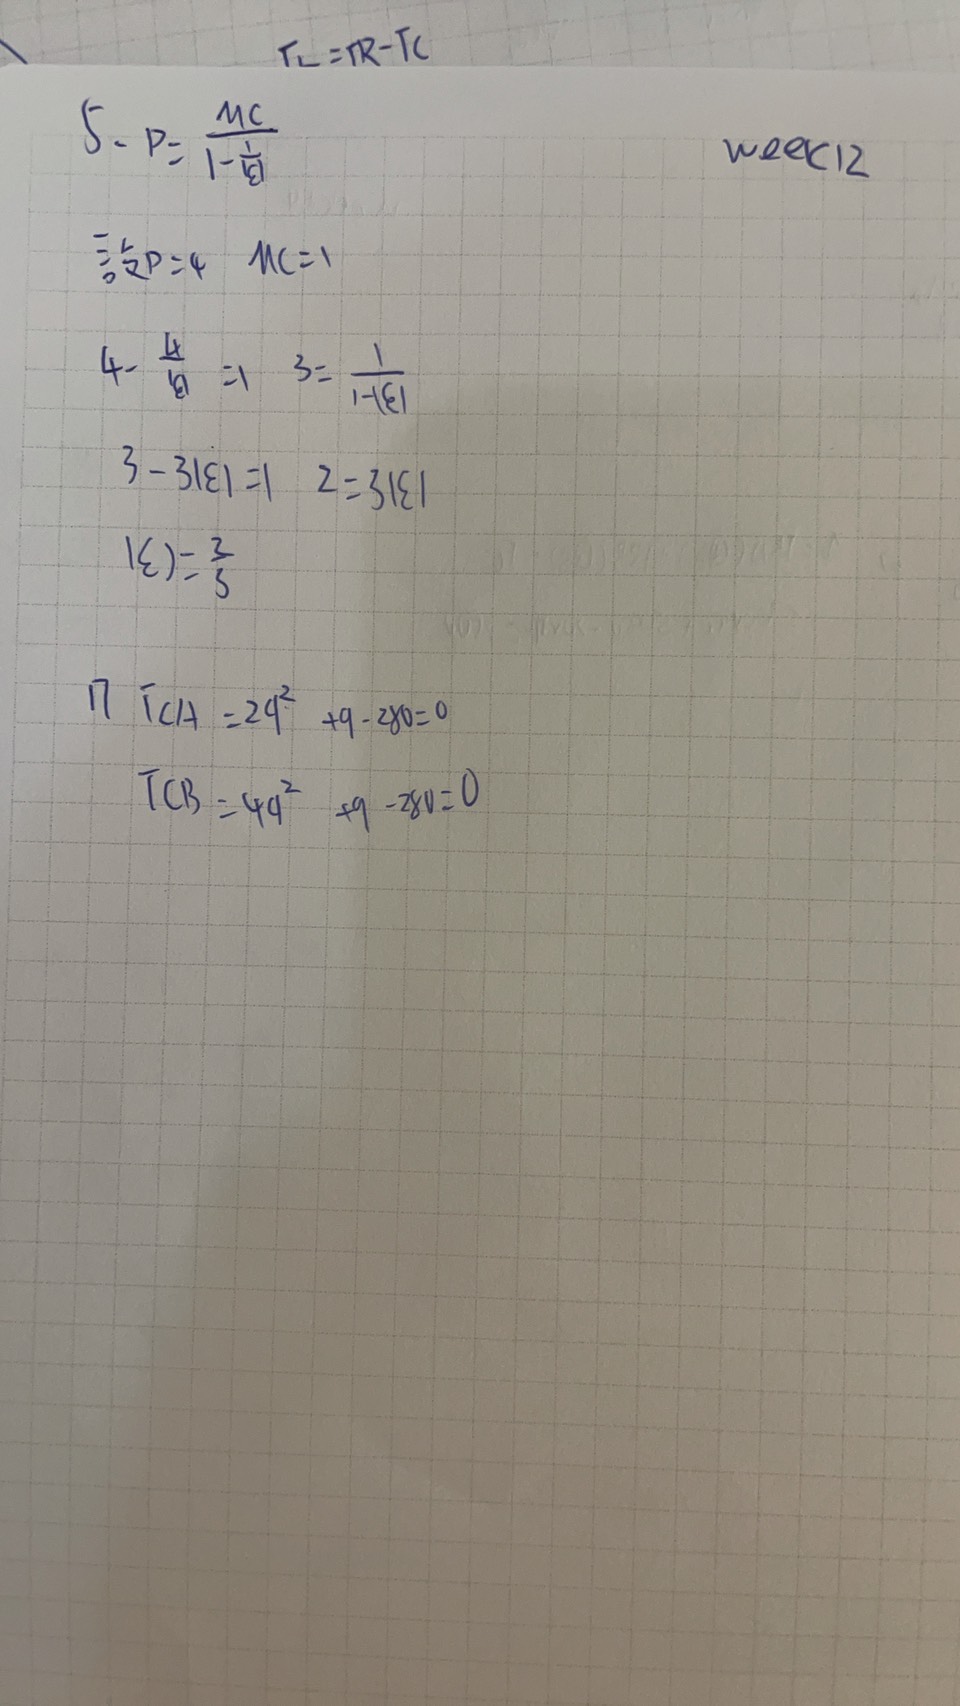 TL=TR-TC
week12
5- P=MC/(1-1/|ε|)
設P=4 MC=1
4-4/|ε|=1 3=1/(1-|ε|)
3-3|ε|=1 2=3|ε|
|ε|=2/3
17 TCA=2q² +q-280=0
TCB=4q² +q-280=0